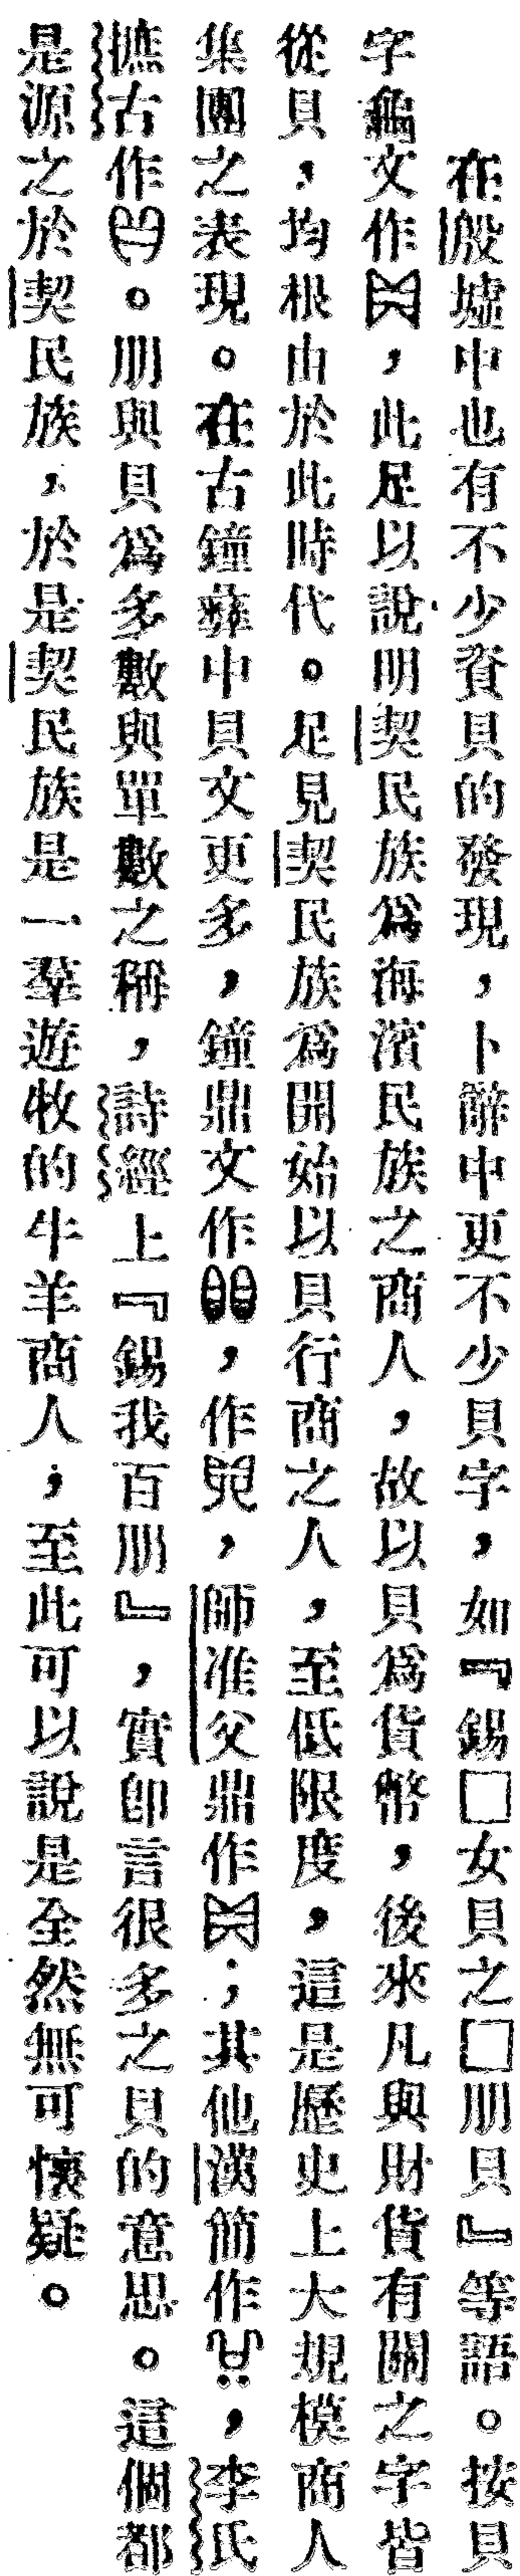 在殷墟中也有不少資貝的發現，卜辭中更不少貝字，如『錫□女貝之□朋貝』等語。按貝
字龜文作，此足以說明契民族爲海濱民族之商人，故以貝爲貨幣，後來凡與財貨有關之字皆
從貝，均根由於此時代。足見契民族爲開始以貝行商之人，至低限度，這是歷史上大規模商人
集團之表現。在古鐘彝中貝文更多，鐘鼎文作，作，師淮父鼎作；其他漢簡作，李氏
摭古作。朋與貝爲多數與單數之稱，詩經上『錫我百朋』，實卽言很多之貝的意思。這個都
是源之於契民族，於是契民族是一羣遊牧的牛羊商人；至此可以說是全然無可懷疑。